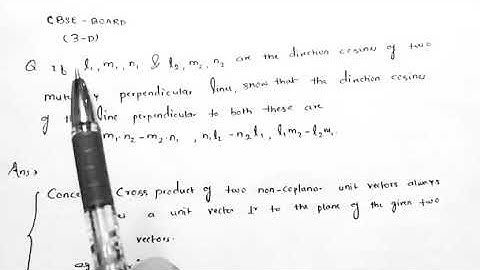 CBSE-BOARD
(3-D)
Q If l₁, m₁, n₁ & l₂, m₂, n₂ are the dirction cosines of two
perpendicular lines, show that the direction cosine
of line perpendicular to both these are
m₁·n₂-m₂·n₁ , n₁l₂-n₂l₁, l₁m₂-l₂m₁.
Ans:
Cross product of two non-coplanar unit vectors always
a unit vector ⊥r to the plane of the given two
vectors.